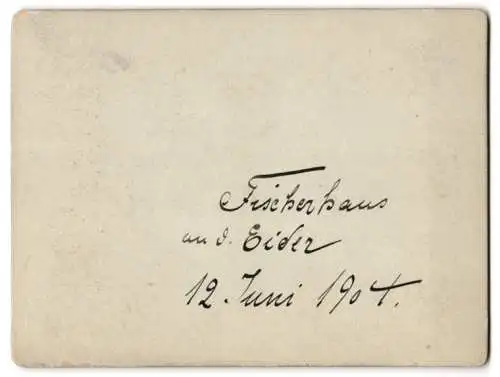 Fischerhaus
an d. Eider
12. Juni 1904.